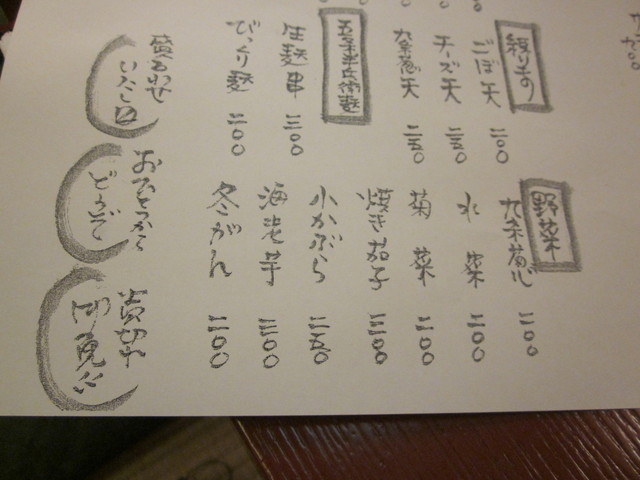 練りもの
ごぼ天 二〇〇
チーズ天 二五〇
九条葱天 二五〇
五条半兵衛麩
生麩串 三〇〇
びっくり麩 二〇〇
野菜
九条葱心 二〇〇
水菜 二〇〇
菊菜 二〇〇
焼き茄子 三〇〇
小かぶら 二五〇
海老芋 三〇〇
冬がん 二〇〇
盛合わせ
いたし〼
おひとつから
どうぞ
売切れ
御免!!